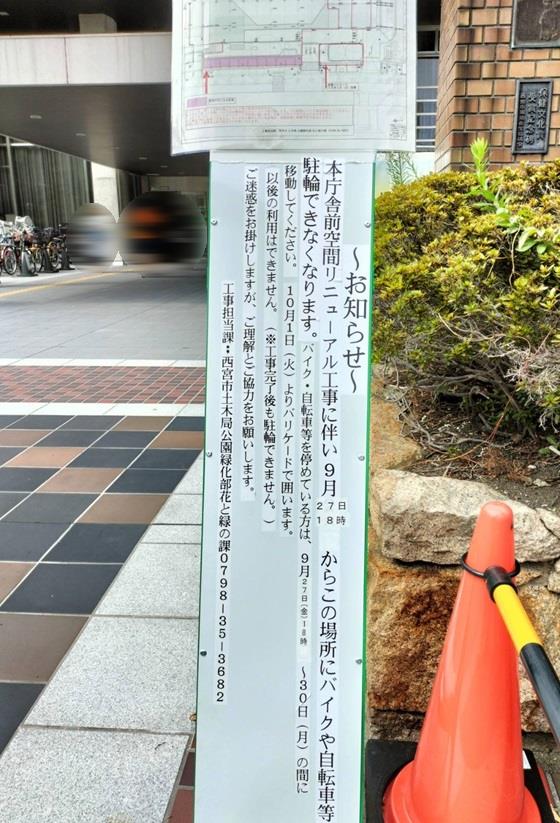 ～お知らせ～
本庁舎前空間リニューアル工事に伴い9月27日18時からこの場所にバイクや自転車等
駐輪できなくなります。バイク・自転車等を停めている方は、9月27日(金)18時～30日（月）の間に
移動してください。10月1日（火）よりバリケードで囲います。
以後の利用はできません。（※工事完了後も駐輪できません。）
ご迷惑をお掛けしますが、ご理解とご協力をお願いします。
工事担当課：西宮市土木局公園緑化部花と緑の課0798－35－3682